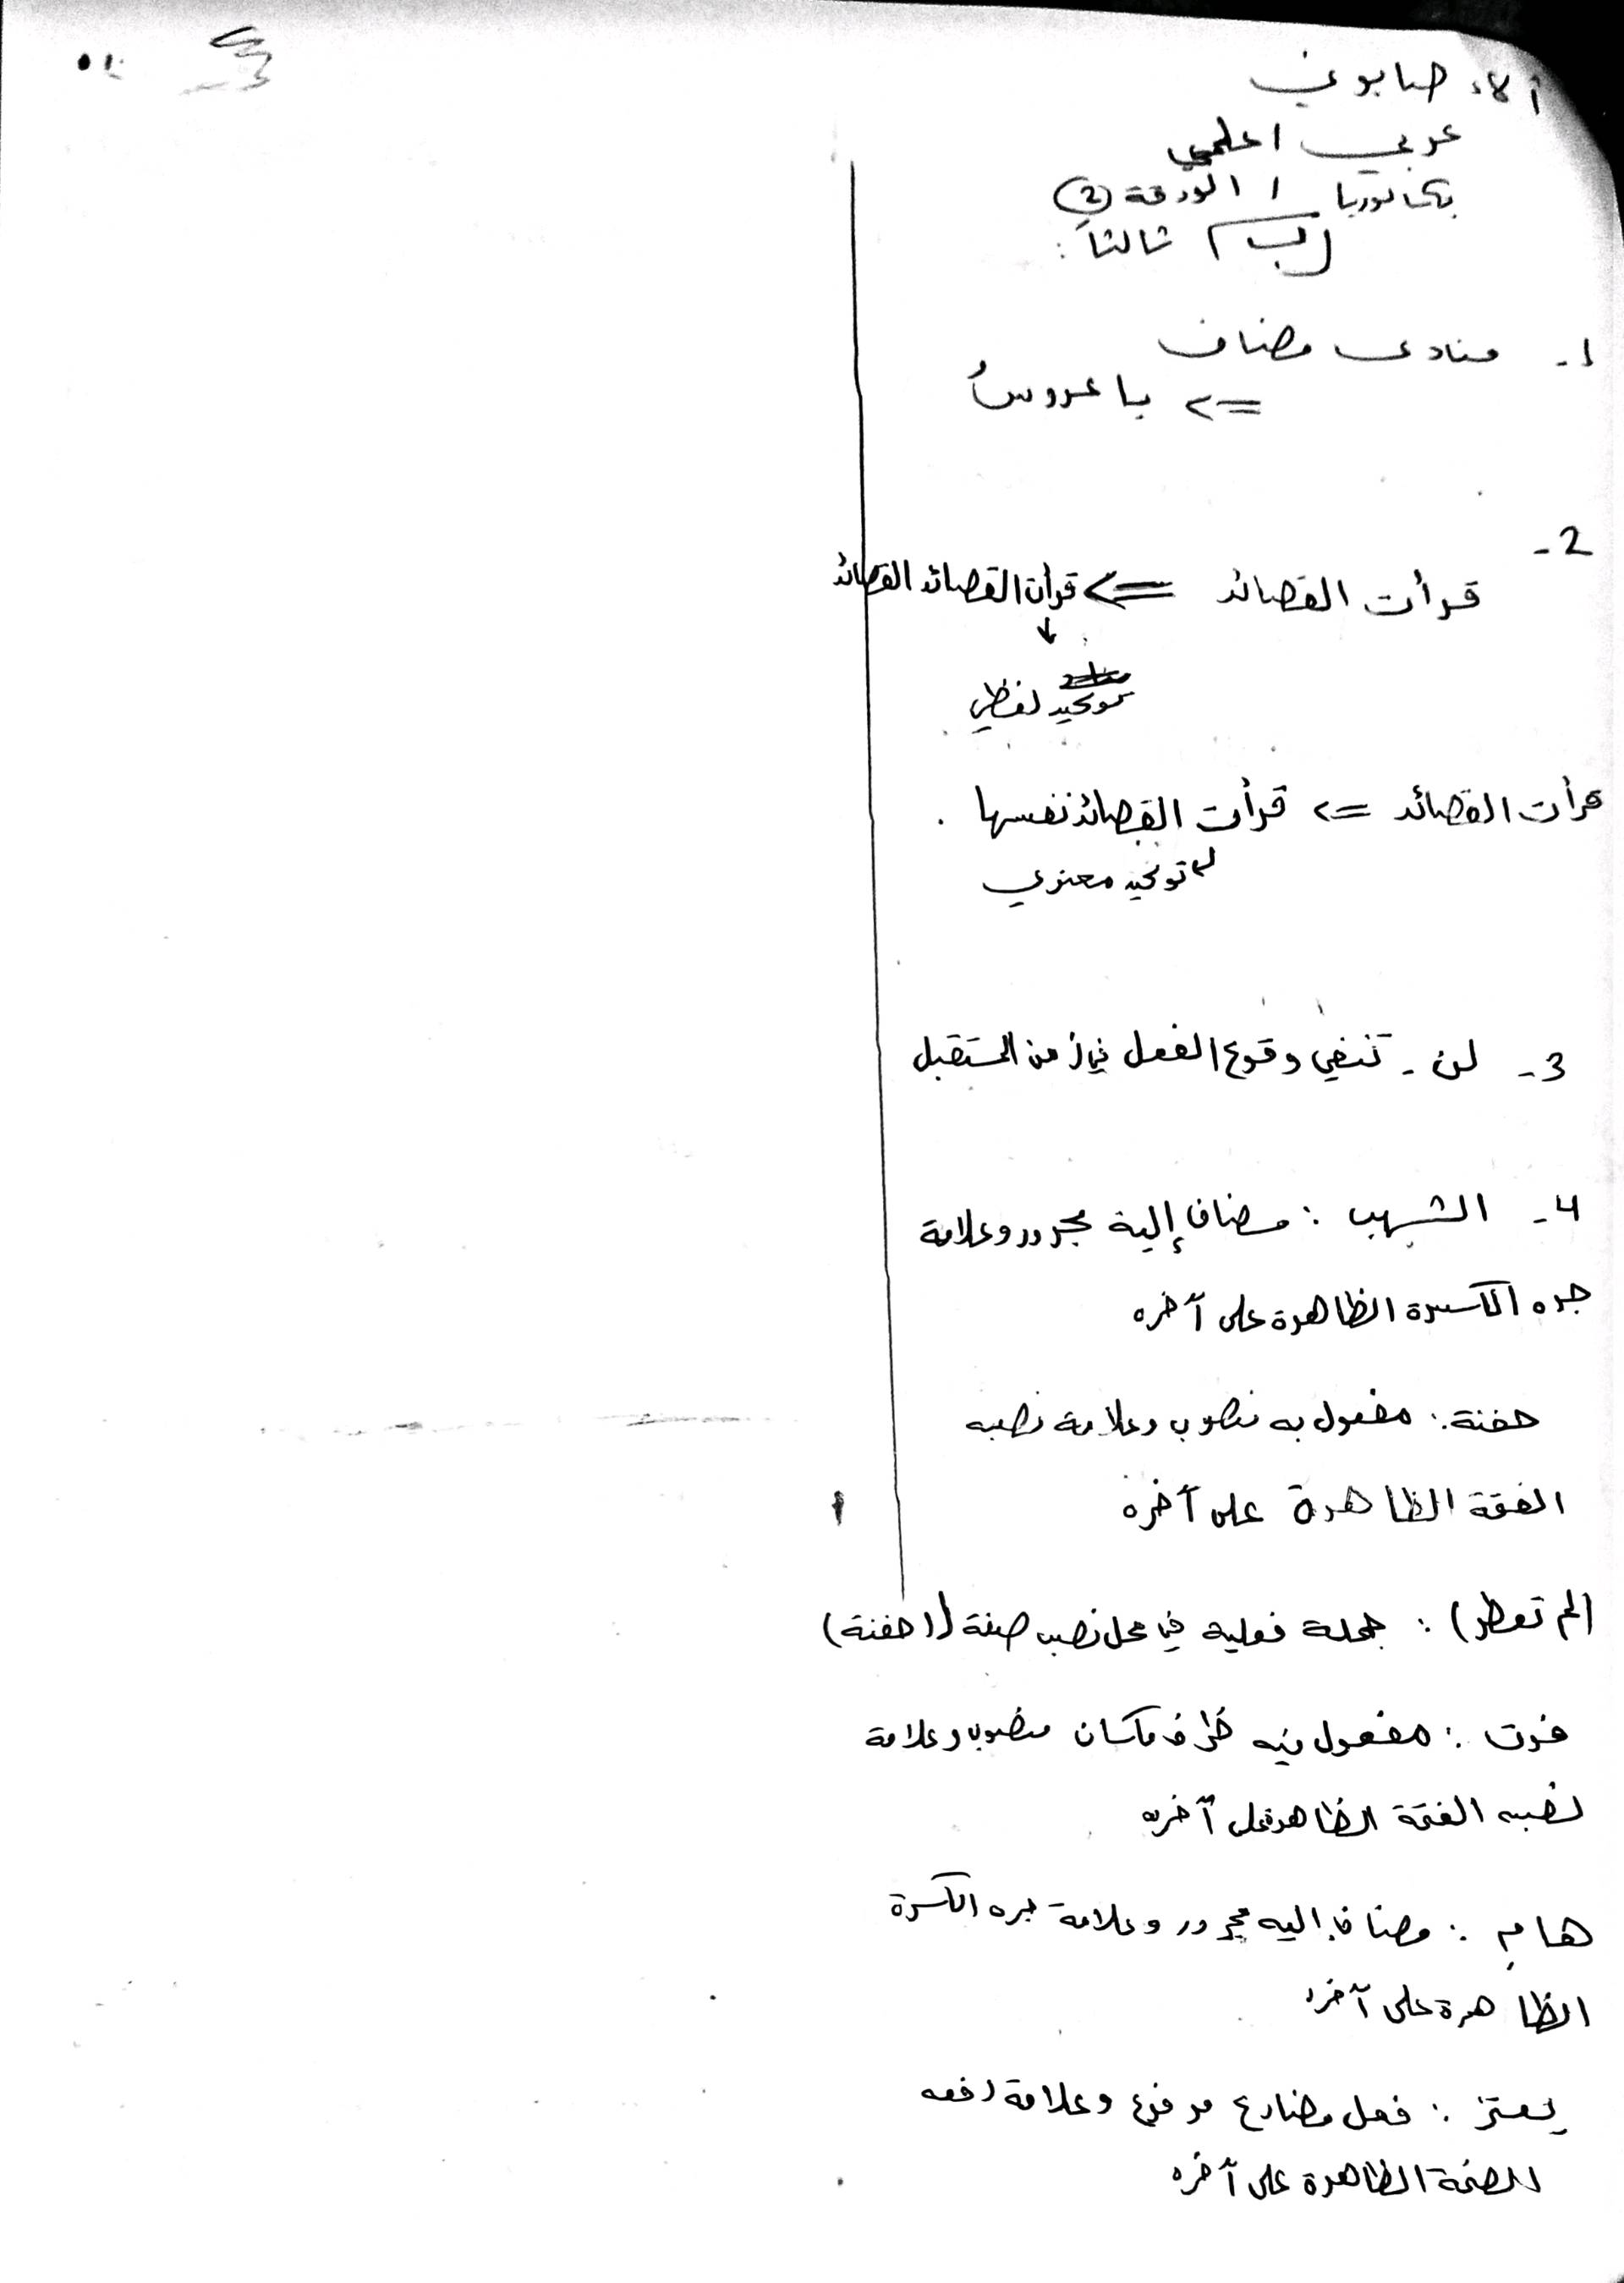 آلاء صابوني
عربي / علمي
بكالوريا / الورقة (2)
(ب) ثالثاً:
1- منادى مضاف
=> يا عروسُ
2-
قرأت القصائد => قرأت القصائد القصائد
توكيد لفظي
قرأت القصائد => قرأت القصائد نفسها .
توكيد معنوي
3- لن - تنفي وقوع الفعل في زمن المستقبل
4- الشهب : مضاف إلية مجرور وعلامة
جره الكسرة الظاهرة على آخره
حفنة : مفعول به منصوب وعلامة نصبه
الفتحة الظاهرة على آخره
(لم تعطر) : جملة فعلية في محل نصب صفة (حفنة)
فوت : مفعول فيه ظرف مكان منصوب وعلامة
نصبه الفتحة الظاهرة على آخره
هامِ : مضاف إليه مجرور وعلامة جره الكسرة
الظاهرة على آخره
يعتز : فعل مضارع مرفوع وعلامة رفعه
الضمة الظاهرة على آخره